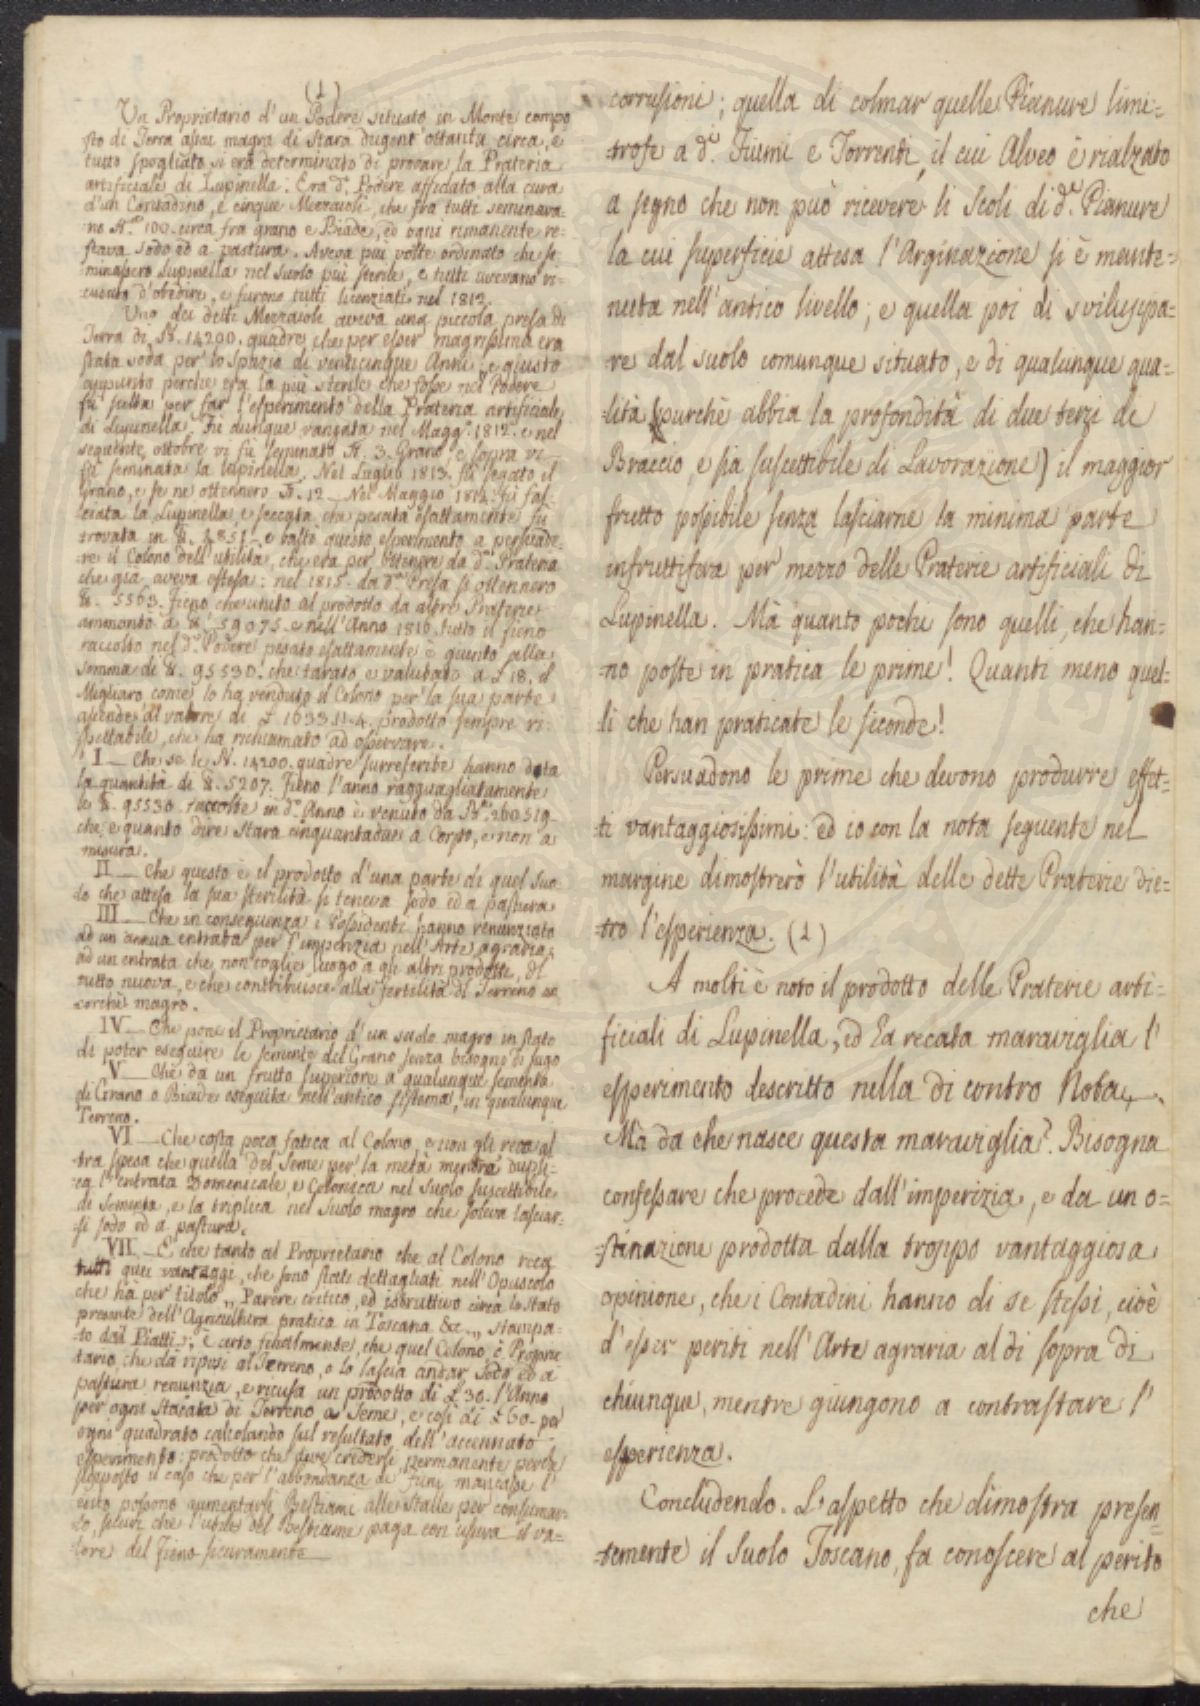 (1)
Un Proprietario d'un Podere situato in Monte compo
sto di Terra assai magra di Stara dugent'ottanta circa, e
tutto spogliato si era determinato di provare la Prateria
artificiale di Lupinella. Era d.º Podere affidato alla cura
d'un Contadino, e cinque Mezzaioli, che fra tutti seminava-
no 100. circa fra grano e Biade, ed ogni rimanente re-
stava sodo ed a pastura. Aveva più volte ordinato che se-
minassero Lupinella nel Suolo più sterile, e tutti
d'obedire, e furono tutti licenziati nel 1812.
Uno dei detti Mezzaioli aveva una piccola presa di
Terra di 14200. quadre, che per esser magrissima era
stata soda per lo spazio di venticinque Anni, e giusto
appunto perchè era la più sterile che fosse nel Podere
fù scelta per far l'esperimento della Prateria artificiale
di Lupinella. Fù dunque vangata nel Magg.º 1812. e nel
seguente ottobre vi fù seminato 3. Grano, e sopra vi
fù seminata la lupinella. Nel Luglio 1813. fù segato il
Grano, e se ne ottennero 12. Nel Maggio 1814. fù fal-
ciata la Lupinella, e seccata che pesata esattamente fù
trovata in e bastò questo esperimento a persuade-
re il Colono dell'utilità, che era per ottenere da d.ª Prateria
che già aveva estesa: nel 1815. da d.ª Presa si ottennero
5563. Fieno che unito al prodotto da altre Praterie
ammontò a 59075. e nell'Anno 1816. tutto il fieno
raccolto nel d.º Podere pesato esattamente è giunto alla
somma di 95530. che tarato, e valutato a £ 18. il
Migliaro come lo ha venduto il Colono per la sua parte
ascende al valore di £ 1633.11.4. prodotto sempre ri-
spettabile, che ha richiamato ad osservare.
I — Che se le 14200. quadre surreferibe hanno data
la quantità di 5207. Fieno l'anno ragguagliatamente
le 95530. raccolte in d.º Anno è venuto da 260519
che è quanto dire Stara cinquantadue a Corpo, e non a
misura.
II — Che questo è il prodotto d'una parte di quel Suo-
lo che attesa la sua sterilità si teneva sodo ed a pastura
III — Che in conseguenza i Possidenti hanno renunziato
ad un annua entrata per l'imperizia nell'Arte agraria;
ad un entrata che non toglie luogo a gli altri prodotti, di
tutto nuova, e che contribuisce alla fertilità di Terreno an
corchè magro.
IV — Che pone il Proprietario d'un suolo magro in stato
di poter eseguire le semente del Grano senza bisogno di sugo
V — Che da un frutto superiore a qualunque sementa
di Grano o Biade eseguita nell'antico sistema, in qualunque
Terreno.
VI — Che costa poca fatica al Colono, e non gli reca al
tra spesa che quella del Seme per la metà mentre dupli-
ca l'entrata Domenicale, e Colonica nel suolo suscettibile
di Sementa, e la triplica nel Suolo magro che soleva lasciar-
si sodo ed a pastura.
VII — E che tanto al Proprietario che al Colono reca
tutti quei vantaggi, che sono stati dettagliati nell'Opuscolo
che hà per titolo „ Parere critico, ed istruttivo circa lo stato
presente dell'Agricultura pratica in Toscana &c. „ stampa-
to dal Piatti; è certo finalmente, che quel Colono, e Proprie
tario che dà riposi al Terreno, o lo lascia andar sodo ed a
pastura renunzia, e ricusa un prodotto di £ 30. l'Anno
per ogni Stacata di Terreno a Seme, e così di £ 60. per
ogni quadrato calcolando sul resultato dell'accennato
esperimento: prodotto che deve credersi permanente perchè
supposto il caso che per l'abbondanza de' fieni mancasse l'
esito possono aumentarsi Bestiami alle stalle per consumar-
lo, sicuri che l'utile del Bestiame paga con usura il va-
lore del fieno sicuramente —
corrusioni; quella di colmar quelle Pianure limi-
trofe a d.i Fiumi e Torrenti, il cui Alveo è rialzato
a segno che non può ricevere li Scoli di d.e Pianure
la cui superficie attesa l'Arginazione si è mante-
nuta nell'antico livello; e quella poi di sviluppa-
re dal suolo comunque situato, e di qualunque qua-
lità (purchè abbia la profondità di due terzi di
Braccio, e sia suscettibile di Lavorazione) il maggior
frutto possibile senza lasciarne la minima parte
infruttifera per mezzo delle Praterie artificiali di
Lupinella. Mà quanto pochi sono quelli, che han-
no poste in pratica le prime! Quanti meno quel-
li che han praticate le seconde!
Persuadono le prime che devono produrre effet-
ti vantaggiosissimi: ed io con la nota seguente nel
margine dimostrerò l'utilità delle dette Praterie die-
tro l'esperienza. (1)
A molti è noto il prodotto delle Praterie arti-
ficiali di Lupinella, ed ha recata maraviglia l'
esperimento descritto nella di contro Nota.
Mà da che nasce questa maraviglia? Bisogna
confessare che procede dall'imperizia, e da un o-
stinazione prodotta dalla troppo vantaggiosa
opinione, che i Contadini hanno di se stessi, cioè
d'esser periti nell'Arte agraria al di sopra di
chiunque, mentre giungono a contrastare l'
esperienza.
Concludendo. L'aspetto che dimostra presen-
temente il Suolo Toscano, fa conoscere al perito
che